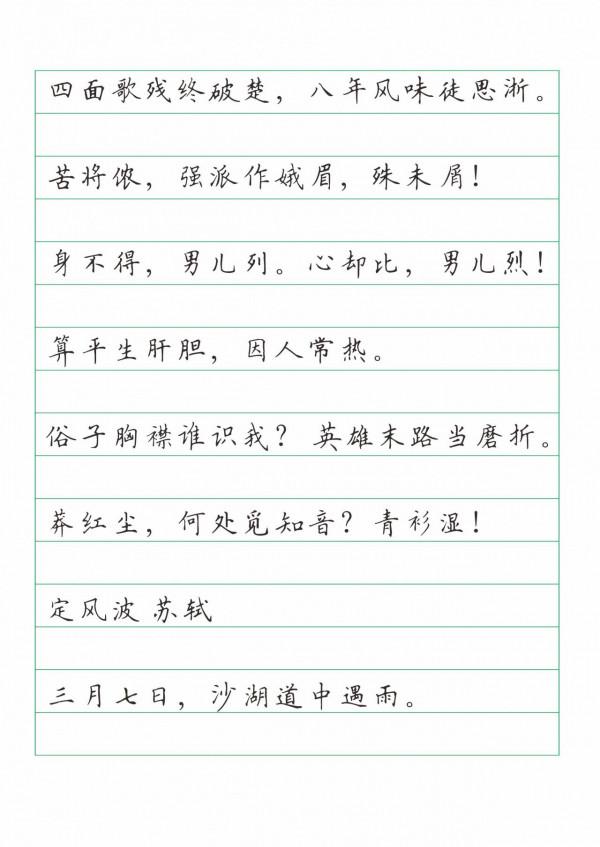 四面歌残终破楚，八年风味徒思浙。
苦将侬，强派作娥眉，殊未屑！
身不得，男儿列。心却比，男儿烈！
算平生肝胆，因人常热。
俗子胸襟谁识我？英雄末路当磨折。
莽红尘，何处觅知音？青衫湿！
定风波 苏轼
三月七日，沙湖道中遇雨。